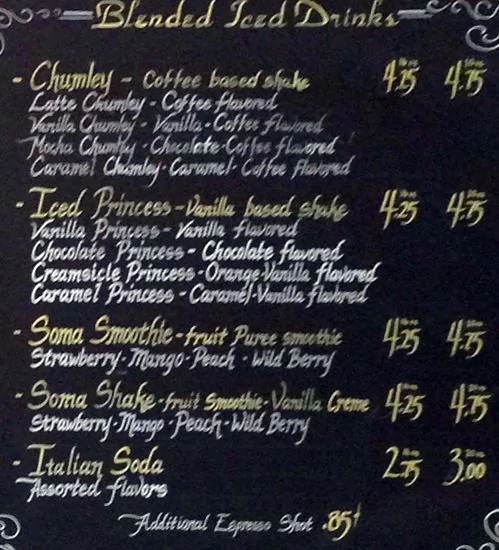 Blended Iced Drinks
- Chumley - Coffee based shake 4.25 4.75
Latte Chumley - Coffee flavored
Vanilla Chumley - Vanilla - Coffee flavored
Mocha Chumley - Chocolate - Coffee flavored
Caramel Chumley - Caramel - Coffee flavored
- Iced Princess - Vanilla based shake 4.25 4.75
Vanilla Princess - Vanilla flavored
Chocolate Princess - Chocolate flavored
Creamsicle Princess - Orange-Vanilla flavored
Caramel Princess - Caramel-Vanilla flavored
- Soma Smoothie - fruit Puree smoothie 4.25 4.75
Strawberry - Mango - Peach - Wild Berry
- Soma Shake - fruit Smoothie - Vanilla Creme 4.25 4.75
Strawberry - Mango - Peach - Wild Berry
- Italian Soda 2.75 3.00
Assorted flavors
Additional Espresso Shot .85¢